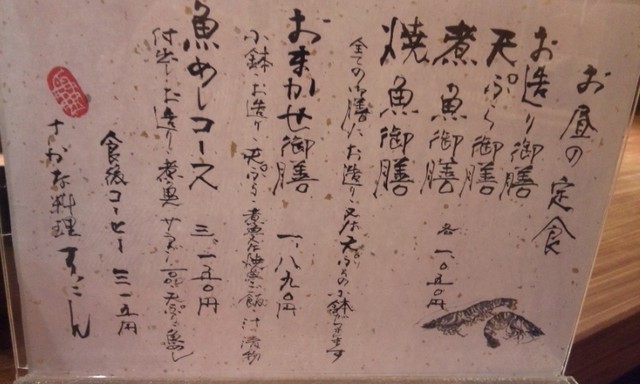 お昼の定食
お造り御膳
天ぷら御膳
煮魚御膳
焼魚御膳
各一、〇五〇円
全ての御膳にお造り又は天ぷらの小鉢が付きます
おまかせ御膳 一、八九〇円
小鉢・お造り・天ぷら・煮魚又は焼魚・ご飯・汁・漬物
魚めしコース 三、一五〇円
付出し・お造り・煮魚・サラダ・天ぷら・魚めし
食後コーヒー 三一五円
さかな料理